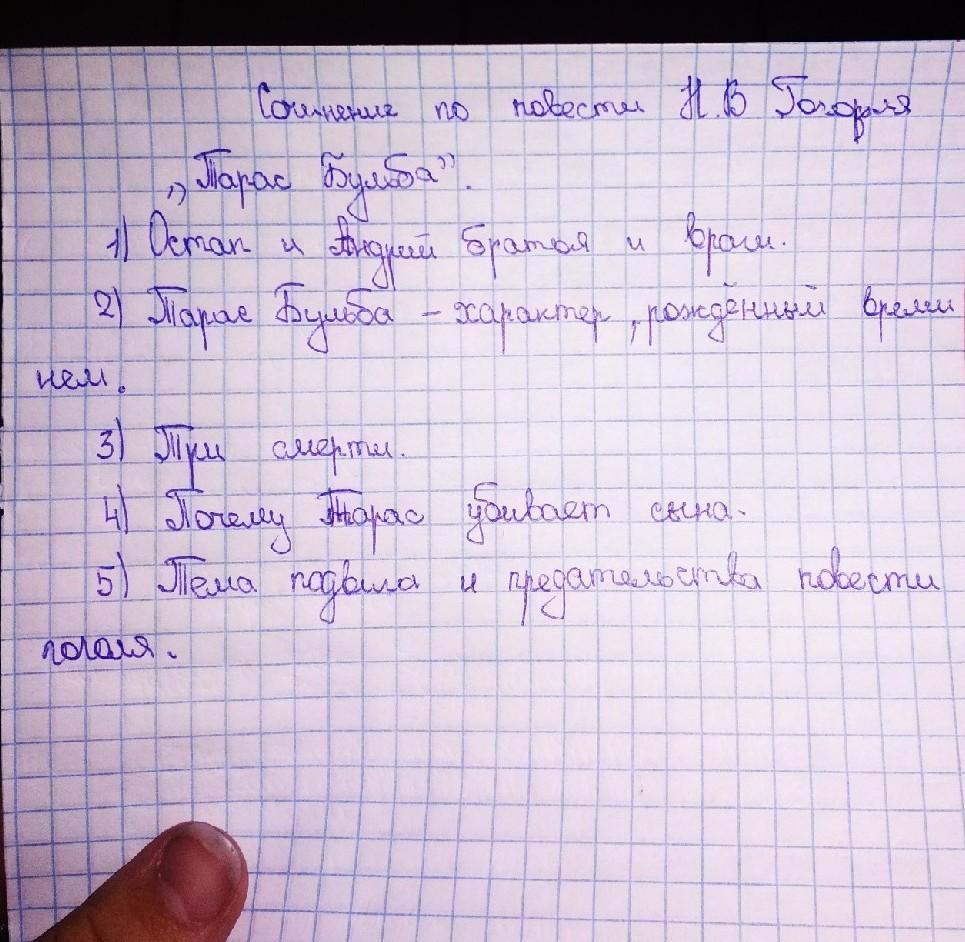 Сочинение по повести Н.В Гоголя
„Тарас Бульба”.
1) Остап и Андрий братья и враги.
2) Тарас Бульба – характер, рождённый време
нем.
3) Три смерти.
4) Почему Тарас убивает сына.
5) Тема подвига и предательства повести
гоголя.